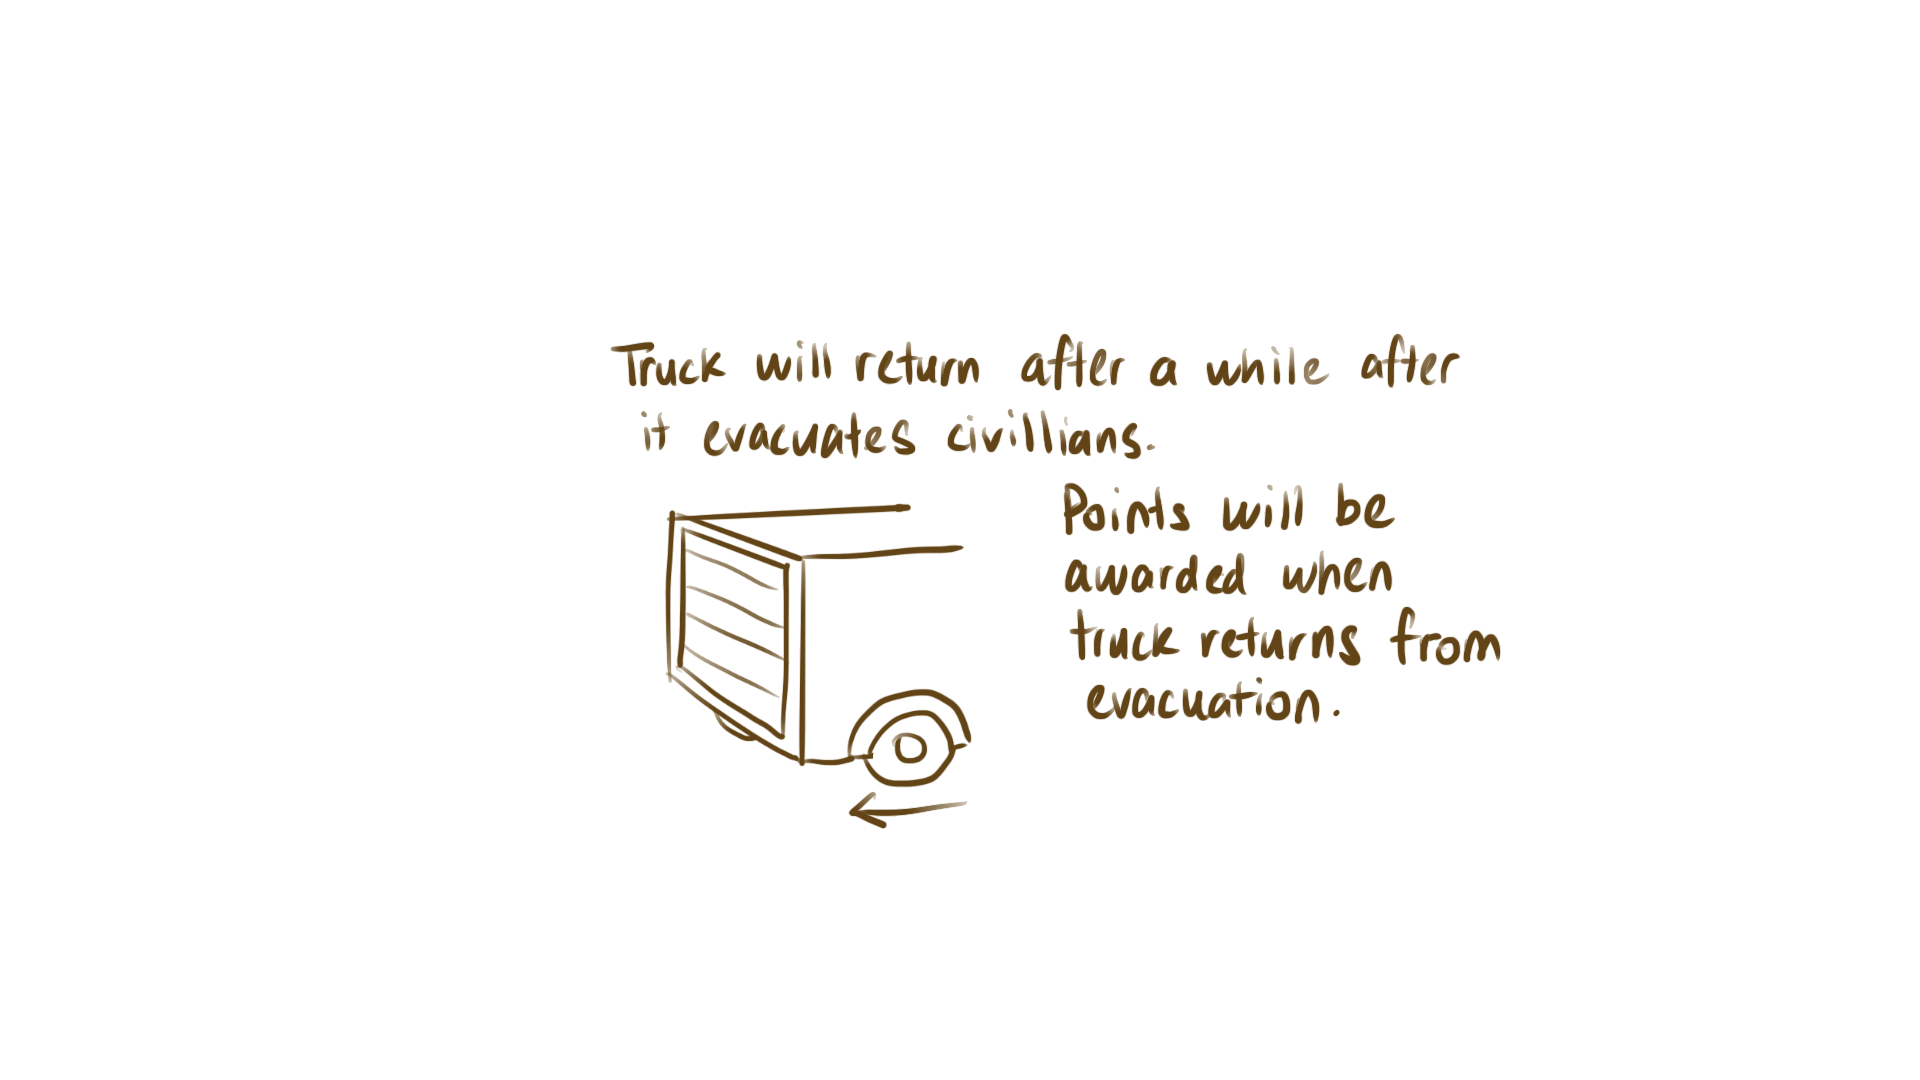 Truck will return after a while after
it evacuates civillians.
Points will be
awarded when
truck returns from
evacuation.